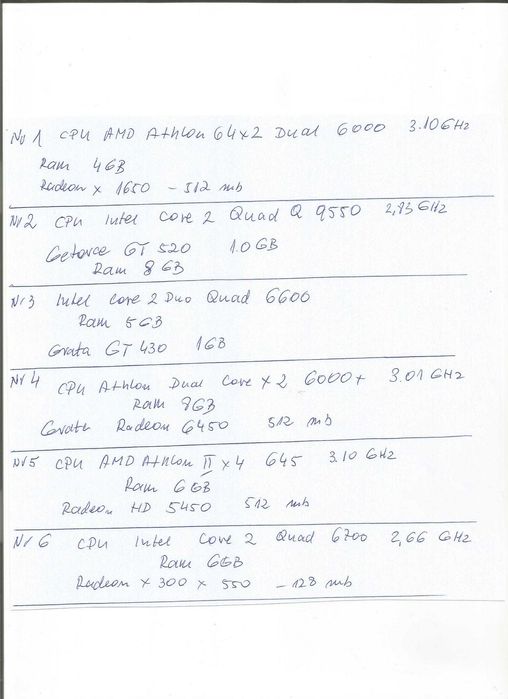 Nr 1 CPU AMD Athlon 64x2 Dual 6000 3.10GHz
Ram 4GB
Radeon x 1650 - 512 mb
Nr 2 CPU Intel Core 2 Quad Q 9550 2,83GHz
Geforce GT 520 1.0GB
Ram 8GB
Nr 3 Intel Core 2 Duo Quad 6600
Ram 5GB
Grafa GT 430 1GB
Nr 4 CPU Athlon Dual Core x2 6000+ 3.01GHz
Ram 8GB
Radeon 6450 512 mb
Nr 5 CPU AMD Athlon II x4 645 3.10GHz
Ram 6GB
Radeon HD 5450 512 mb
Nr 6 CPU Intel Core 2 Quad 6700 2,66 GHz
Ram 6GB
Radeon x 300 x 550 - 128 mb